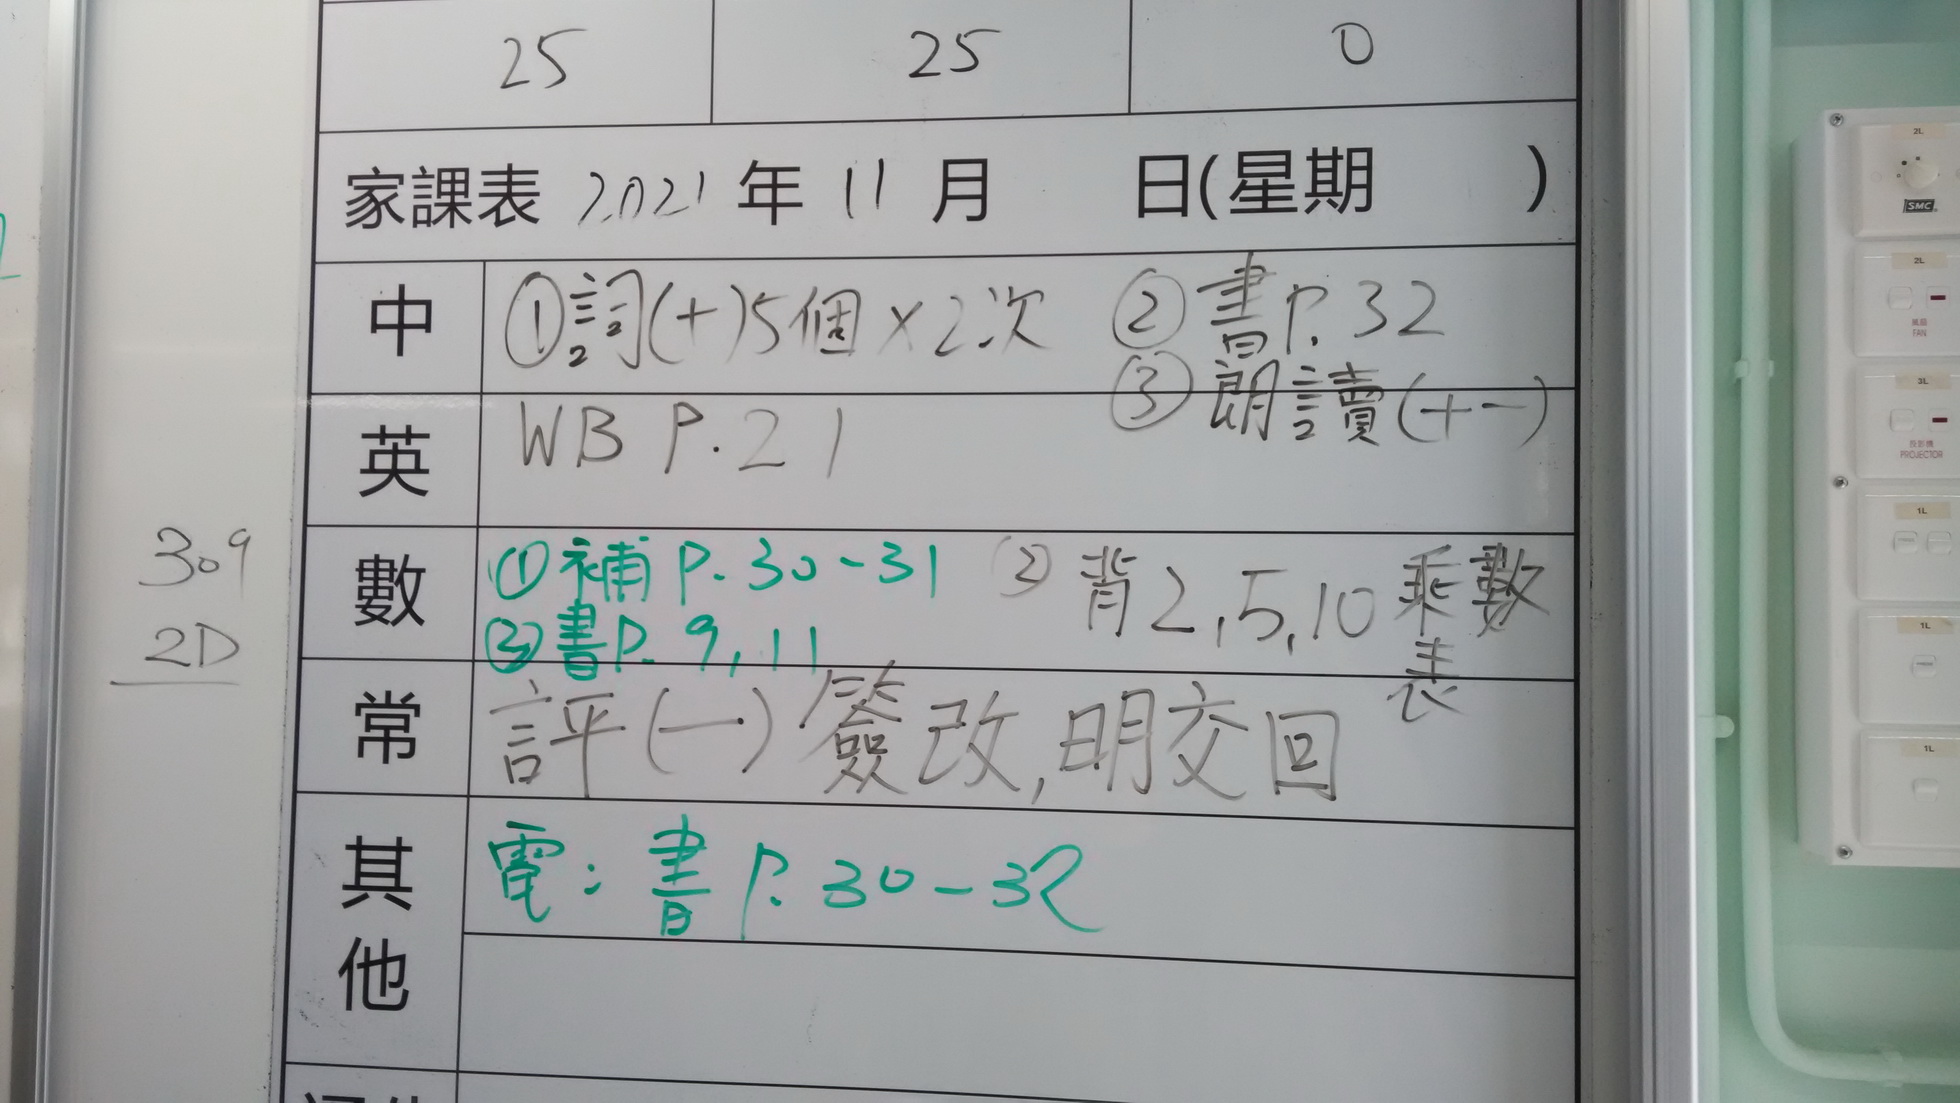 25 25 0
家課表 2021 年 11 月 日(星期 )
中 ①詞(十)5個×2次 ②書P.32
③朗讀(十一)
英 WB P.21
數 ①補P.30-31 ②背2,5,10乘數表
③書P.9,11
常 評(一)簽改,明交回
其他 電:書P.30-32
309
2D
2L
SMC
2L
風扇
FAN
3L
投影機
PROJECTOR
1L
1L
1L